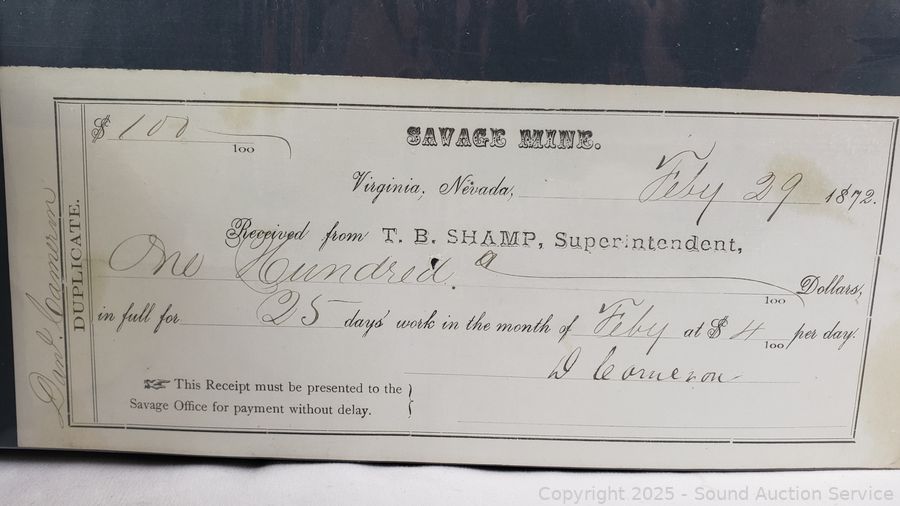 $ 100
100
SAVAGE MINE.
Virginia, Nevada, Feby 29 1872.
Received from T. B. SHAMP, Superintendent,
One Hundred Dollars,
100
in full for 25 days' work in the month of Feby at $ 4 per day.
100
D Cameron
This Receipt must be presented to the
Savage Office for payment without delay.
DUPLICATE.
Danl Cameron
Copyright 2025 - Sound Auction Service